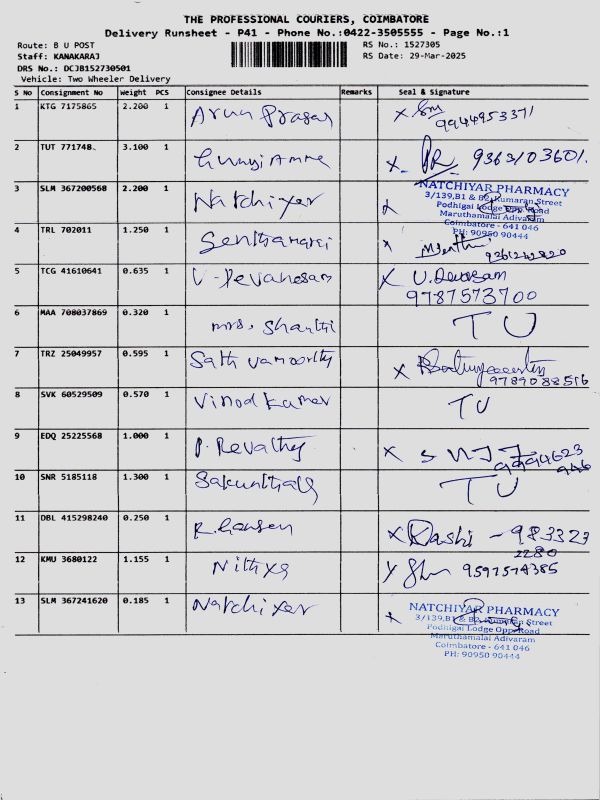 THE PROFESSIONAL COURIERS, COIMBATORE
Delivery Runsheet - P41 - Phone No.:0422-3505555 - Page No.:1
Route: B U POST
RS No.: 1527305
Staff: KANAKARAJ
RS Date: 29-Mar-2025
DRS No.: DCJB152730501
Vehicle: Two Wheeler Delivery
S No Consignment No Weight PCS Consignee Details Remarks Seal & Signature
1 KTG 7175865 2.200 1 Arun Prasar X
9944953371
2 TUT 771748. 3.100 1 X 9363103601.
3 SLM 367200568 2.200 1 Natchiyer
NATCHIYAR PHARMACY
3/139,B1 & B2, Kumaran Street
Podhigai Lodge Opp. Road
Maruthamalai Adivaram
Coimbatore - 641 046
PH: 90950 90444
4 TRL 702011 1.250 1 X
9261242820
5 TCG 41610641 0.635 1 V. Devanesam X U.Devasam
9787573700
6 MAA 708037869 0.320 1 mrs. Shanthi TU
7 TRZ 25049957 0.595 1 Sath yamoorthy X
9789088516
8 SVK 60529509 0.570 1 Vinod kumar TU
9 EDQ 25225568 1.000 1 P. Revathy X
99994623
946
10 SNR 5185118 1.300 1 Sakunthala TU
11 DBL 415298240 0.250 1 X Rashi - 983323
2280
12 KMU 3680122 1.155 1 Nithya 9597574385
13 SLM 367241620 0.185 1 Natchiyer X
NATCHIYAR PHARMACY
3/139,B1 & B2, Kumaran Street
Podhigai Lodge Opp. Road
Maruthamalai Adivaram
Coimbatore - 641 046
PH: 90950 90444